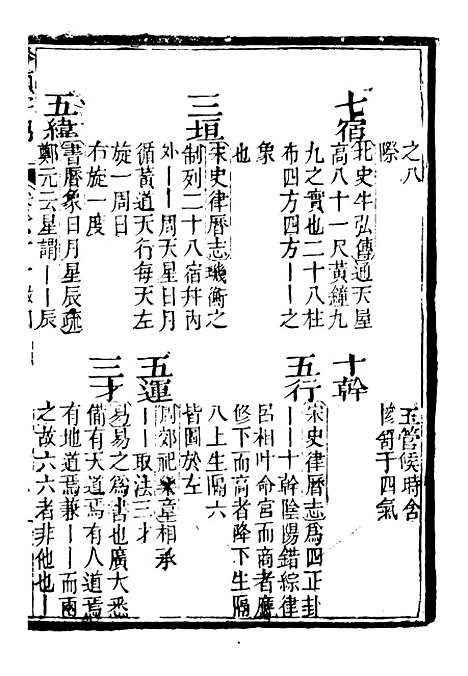 之八
際
七宿
北史牛弘傳通天屋
高八十一尺黃鐘九
九之實也二十八柱
布四方四方丨丨之
象
也
三垣
宋史律曆志璣衡之
制列二十八宿幷內
外丨丨周天星日月
循黃道天行每天左
旋一周日
右旋一度
五緯
書曆象日月星辰疏
鄭元云星謂丨丨辰
玉管候時含
于四氣
十幹
五行
宋史律曆志爲四正卦
丨丨十幹陰陽錯綜律
呂相叶命宮而商者應
修下而高者降下生隔
八上生隔六
皆圖於左
五運
郊祀樂章相承
丨丨取法三才
三才
易易之爲書也廣大悉
備有天道焉有人道焉
有地道焉兼丨丨而兩
之故六六者非他也丨